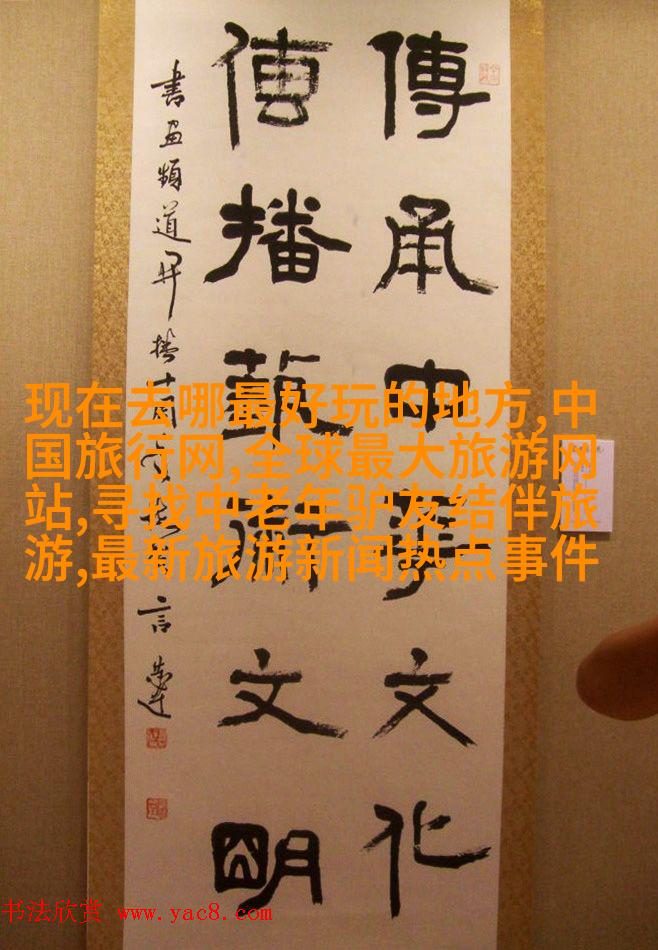 傳承中華文化
傳播藝術文明
書画頻道开播十周年
言恭達
现在去哪最好玩的地方,中
国旅行网,全球最大旅游网
站,寻找中老年驴友结伴旅
游,最新旅游新闻热点事件
书法欣赏 www.yac8.com